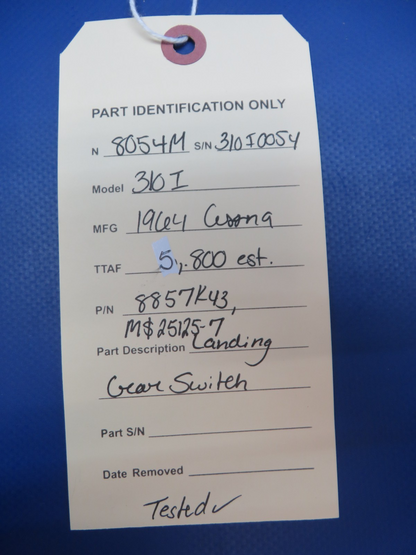 PART IDENTIFICATION ONLY
N 8054M S/N 310I0054
Model 310 I
MFG 1964 Cessna
TTAF 5,800 est.
P/N 8857K43,
MS25125-7
Part Description Landing
Gear Switch
Part S/N
Date Removed
Tested ✓